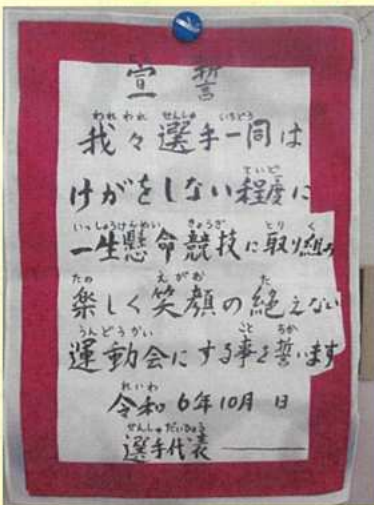 宣誓
我々選手一同は
けがをしない程度に
一生懸命競技に取り組み
楽しく笑顔の絶えない
運動会にする事を誓います
令和6年10月 日
選手代表